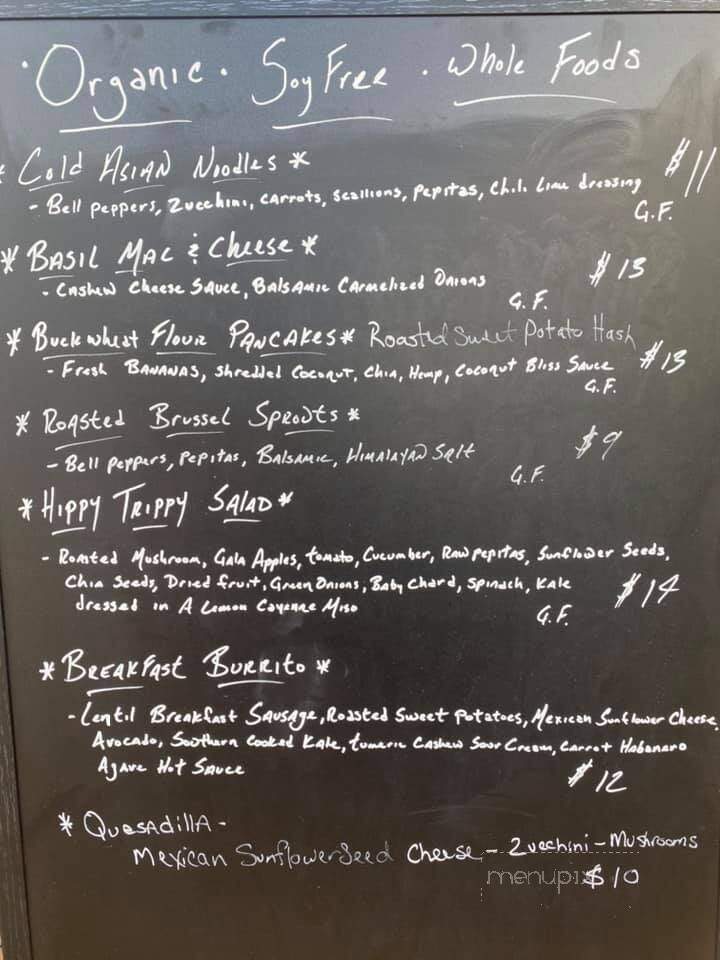 · Organic · Soy Free · Whole Foods
* Cold Asian Noodles *
$11
- Bell peppers, Zucchini, carrots, scallions, pepitas, Chili Lime dressing
G.F.
* Basil Mac & Cheese *
$13
- Cashew Cheese Sauce, Balsamic Carmelized Onions
G.F.
* Buckwheat Flour Pancakes * Roasted Sweet Potato Hash
- Fresh Bananas, shredded Coconut, Chia, Hemp, Coconut Bliss Sauce $13
G.F.
* Roasted Brussel Sprouts *
$9
- Bell peppers, Pepitas, Balsamic, Himalayan Salt
G.F.
* Hippy Trippy Salad *
- Roasted Mushroom, Gala Apples, tomato, Cucumber, Raw pepitas, Sunflower Seeds,
Chia Seeds, Dried fruit, Green Onions, Baby Chard, Spinach, Kale
dressed in A Lemon Cayenne Miso
$14
G.F.
* Breakfast Burrito *
- Lentil Breakfast Sausage, Roasted Sweet Potatoes, Mexican Sunflower Cheese,
Avocado, Southern Cooked Kale, tumeric Cashew Sour Cream, Carrot Habanero
Agave Hot Sauce
$12
* Quesadilla -
Mexican SunflowerSeed Cheese - Zucchini - Mushrooms
$10